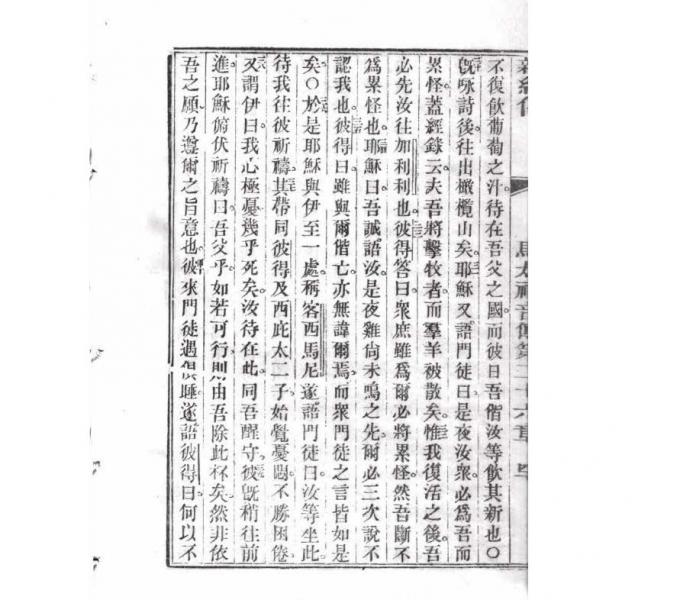 馬太福音傳第二十六章
不復飲葡萄之汁待在吾父之國而彼日吾偕汝等飲其新也〇
既咏詩後往出橄欖山矣耶穌又語門徒曰是夜汝眾必為吾而
累怪蓋經錄云夫吾將擊牧者而羣羊被散矣惟我復活之後吾
必先汝往加利利也彼得答曰眾庶雖爲爾必將累怪然吾斷不
爲累怪也耶穌曰吾誠語汝是夜雞尙未鳴之先爾必三次說不
認我也彼得曰雖與爾偕亡亦無諱爾焉而眾門徒之言皆如是
矣〇於是耶穌與伊至一處稱客西馬尼遂語門徒曰汝等坐此
待我往彼祈禱其帶同彼得及西庇太二子始覺憂悶不勝困倦
又謂伊曰我心極憂幾乎死矣汝待在此同吾醒守彼旣稍往前
進耶穌俯伏祈禱曰吾父乎如若可行則由吾除此杯矣然非依
吾之願乃遵爾之旨意也彼來門徒遇俱睡遂語彼得曰何以不